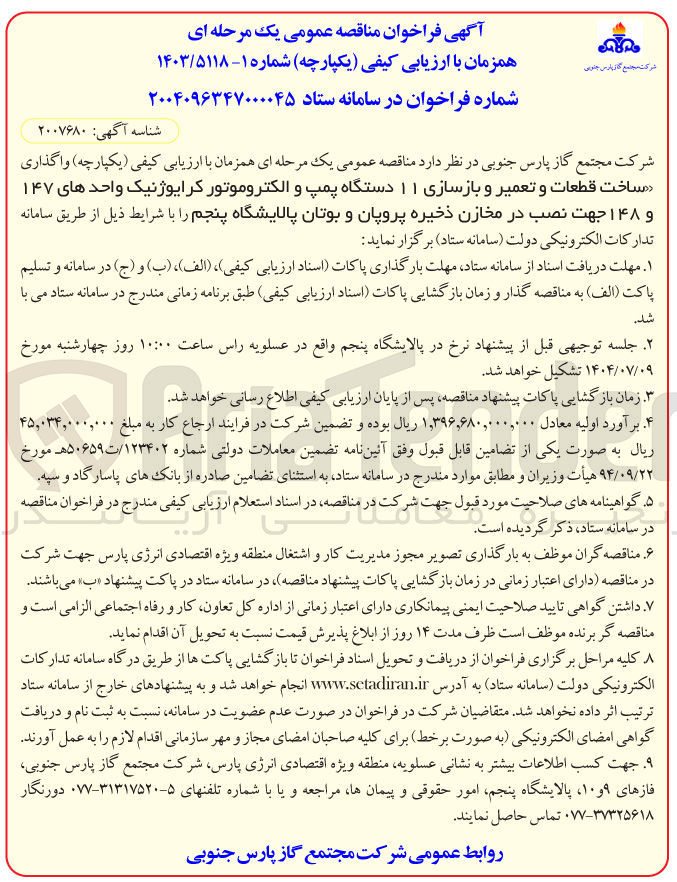 آگهی فراخوان مناقصه عمومی یک مرحله ای
همزمان با ارزیابی کیفی (یکپارچه) شماره ۱- ۱۴۰۳/۵۱۱۸
شرکت مجتمع گاز پارس جنوبی
شماره فراخوان در سامانه ستاد ۲۰۰۴۰۹۶۳۴۷۰۰۰۰۴۵
شناسه آگهی: ۲۰۰۷۶۸۰
شرکت مجتمع گاز پارس جنوبی در نظر دارد مناقصه عمومی یک مرحله ای همزمان با ارزیابی کیفی (یکپارچه) واگذاری
«ساخت قطعات و تعمیر و بازسازی ۱۱ دستگاه پمپ و الکتروموتور کرایوژنیک واحد های ۱۴۷
و ۱۴۸جهت نصب در مخازن ذخیره پروپان و بوتان پالایشگاه پنجم را با شرایط ذیل از طریق سامانه
تدارکات الکترونیکی دولت (سامانه ستاد) برگزار نماید:
۱. مهلت دریافت اسناد از سامانه ستاد، مهلت بارگذاری پاکات (اسناد ارزیابی کیفی)، (الف)، (ب) و (ج) در سامانه و تسلیم
پاکت (الف) به مناقصه گذار و زمان بازگشایی پاکات (اسناد ارزیابی کیفی) طبق برنامه زمانی مندرج در سامانه ستاد می با
شد.
۲. جلسه توجیهی قبل از پیشنهاد نرخ در پالایشگاه پنجم واقع در عسلویه راس ساعت ۱۰:۰۰ روز چهارشنبه مورخ
۱۴۰۴/۰۷/۰۹ تشکیل خواهد شد.
۳. زمان بازگشایی پاکات پیشنهاد مناقصه، پس از پایان ارزیابی کیفی اطلاع رسانی خواهد شد.
۴. برآورد اولیه معادل ۱,۳۹۶,۶۸۰,۰۰۰,۰۰۰ ریال بوده و تضمین شرکت در فرایند ارجاع کار به مبلغ ۴۵,۰۳۴,۰۰۰,۰۰۰
ریال به صورت یکی از تضامین قابل قبول وفق آئین‌نامه تضمین معاملات دولتی شماره ۱۲۳۴۰۲/ت۵۰۶۵۹هـ مورخ
۹۴/۰۹/۲۲ هیأت وزیران و مطابق موارد مندرج در سامانه ستاد، به استثنای تضامین صادره از بانک های پاسارگاد و سپه.
۵. گواهینامه های صلاحیت مورد قبول جهت شرکت در مناقصه، در اسناد استعلام ارزیابی کیفی مندرج در فراخوان مناقصه
در سامانه ستاد، ذکر گردیده است.
۶. مناقصه‌گران موظف به بارگذاری تصویر مجوز مدیریت کار و اشتغال منطقه ویژه اقتصادی انرژی پارس جهت شرکت
در مناقصه (دارای اعتبار زمانی در زمان بازگشایی پاکات پیشنهاد مناقصه)، در سامانه ستاد در پاکت پیشنهاد «ب» می‌باشند.
۷. داشتن گواهی تایید صلاحیت ایمنی پیمانکاری دارای اعتبار زمانی از اداره کل تعاون، کار و رفاه اجتماعی الزامی است و
مناقصه گر برنده موظف است ظرف مدت ۱۴ روز از ابلاغ پذیرش قیمت نسبت به تحویل آن اقدام نماید.
۸. کلیه مراحل برگزاری فراخوان از دریافت و تحویل اسناد فراخوان تا بازگشایی پاکت ها از طریق درگاه سامانه تدارکات
الکترونیکی دولت (سامانه ستاد) به آدرس www.setadiran.ir انجام خواهد شد و به پیشنهادهای خارج از سامانه ستاد
ترتیب اثر داده نخواهد شد. متقاضیان شرکت در فراخوان در صورت عدم عضویت در سامانه، نسبت به ثبت نام و دریافت
گواهی امضای الکترونیکی (به صورت برخط) برای کلیه صاحبان امضای مجاز و مهر سازمانی اقدام لازم را به عمل آورند.
۹. جهت کسب اطلاعات بیشتر به نشانی عسلویه، منطقه ویژه اقتصادی انرژی پارس، شرکت مجتمع گاز پارس جنوبی،
فازهای ۹و۱۰، پالایشگاه پنجم، امور حقوقی و پیمان ها، مراجعه و یا با شماره تلفنهای ۵-۳۱۳۱۷۵۲۰-۰۷۷ دورنگار
۳۷۳۲۵۶۱۸-۰۷۷ تماس حاصل نمایند.
روابط عمومی شرکت مجتمع گاز پارس جنوبی
AriaTender